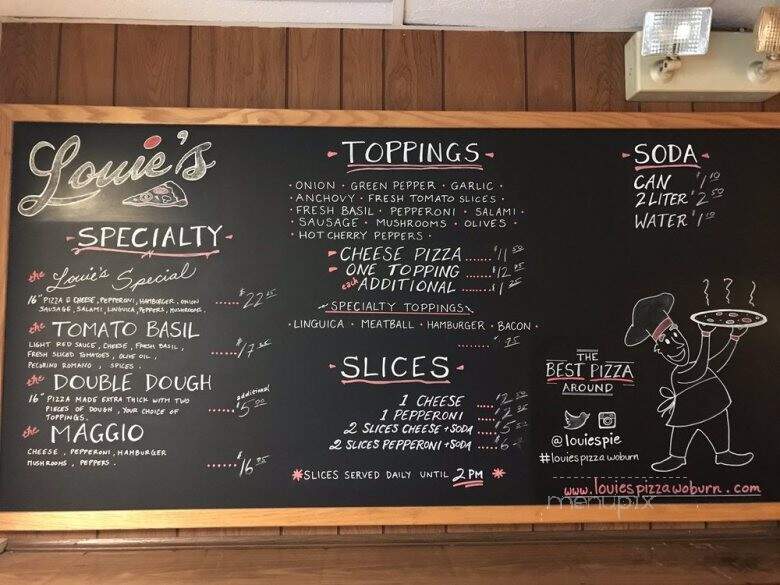 Louie's
SPECIALTY
the Louie's Special
16" PIZZA & CHEESE, PEPPERONI, HAMBURGER, ONION
SAUSAGE, SALAMI, LINGUICA, PEPPERS, MUSHROOMS.
the TOMATO BASIL
LIGHT RED SAUCE, CHEESE, FRESH BASIL,
FRESH SLICED TOMATOES, OLIVE OIL,
PECORINO ROMANO, SPICES.
the DOUBLE DOUGH
16" PIZZA MADE EXTRA THICK WITH TWO
PIECES OF DOUGH, YOUR CHOICE OF
TOPPINGS.
additional
$5.00
the MAGGIO
CHEESE, PEPPERONI, HAMBURGER
MUSHROOMS, PEPPERS.
TOPPINGS
• ONION • GREEN PEPPER • GARLIC •
• ANCHOVY • FRESH TOMATO SLICES •
• FRESH BASIL • PEPPERONI • SALAMI •
• SAUSAGE • MUSHROOMS • OLIVES •
• HOT CHERRY PEPPERS •
CHEESE PIZZA ......
ONE TOPPING ......
each ADDITIONAL ......
SPECIALTY TOPPINGS
• LINGUICA • MEATBALL • HAMBURGER • BACON •
SLICES
1 CHEESE
1 PEPPERONI
2 SLICES CHEESE + SODA
2 SLICES PEPPERONI + SODA
*SLICES SERVED DAILY UNTIL 2 PM *
SODA
CAN
2 LITER $2.50
WATER
THE
BEST PIZZA
AROUND
@louiespie
#louiespizzawoburn
www.louiespizzawoburn.com
menupix